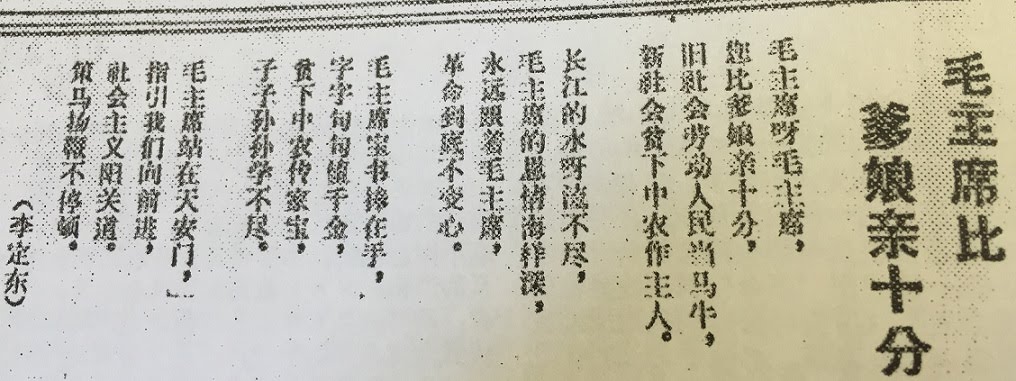 毛主席比
爹娘亲十分
毛主席呀毛主席，
您比爹娘亲十分，
旧社会劳动人民当马牛，
新社会贫下中农作主人。
长江的水呀流不尽，
毛主席的恩情海样深，
永远跟着毛主席，
革命到底不变心。
毛主席宝书捧在手，
字字句句值千金，
贫下中农传家宝，
子子孙孙学不尽。
毛主席站在天安门，
指引我们向前进，
社会主义阳关道。
策马扬鞭不停顿。
（李定东）